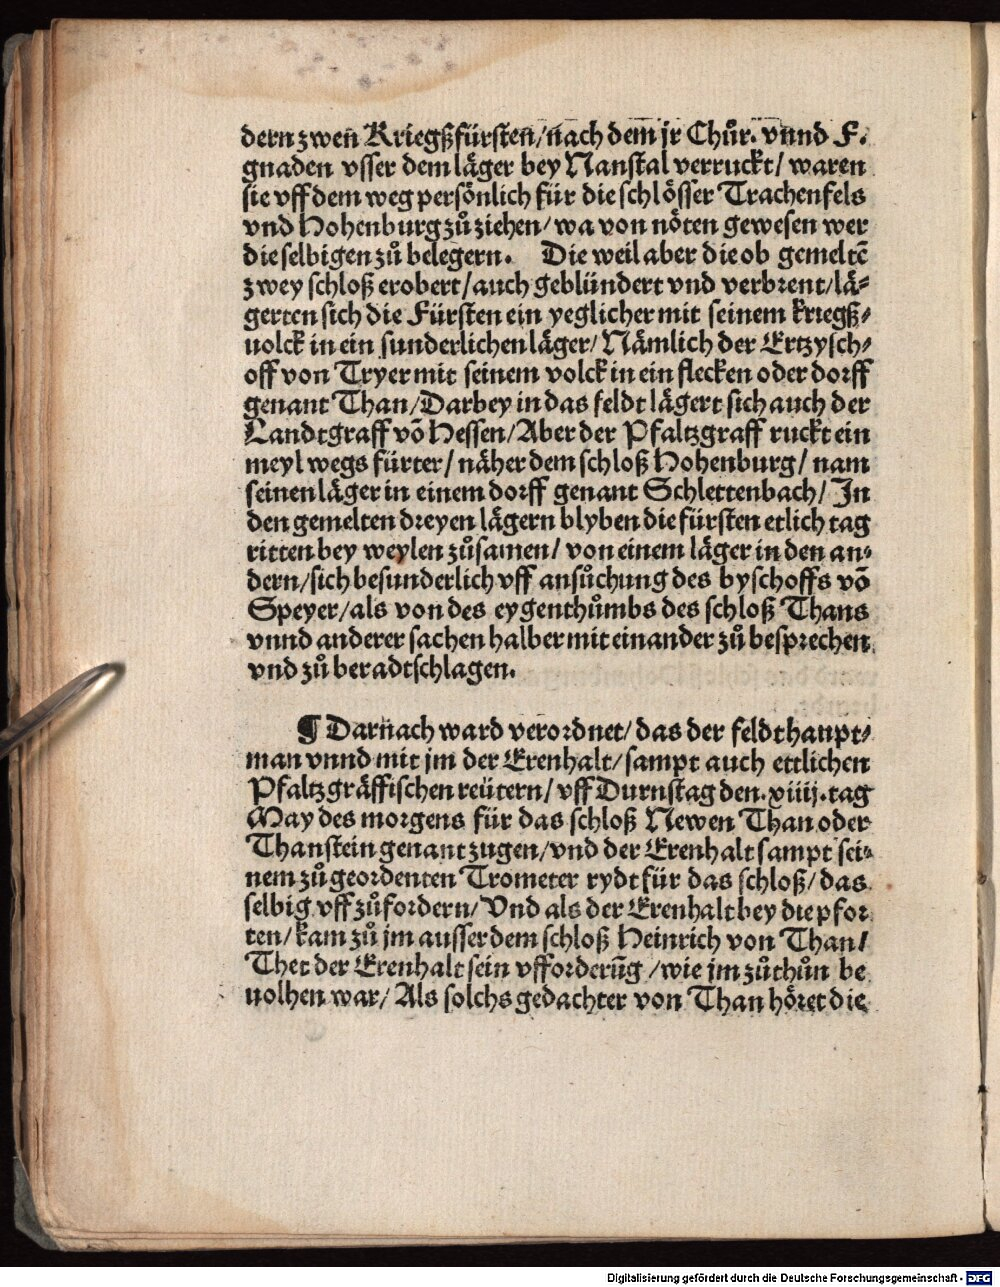 dern zwen Kriegßfürsten/nach dem jr Chůr. vnnd F.
gnaden vsser dem läger bey Nanstal verruckt/ waren
sie vff dem weg persönlich für die schlösser Trachenfels
vnd Hohenburg zů ziehen/ wa von nöten gewesen wer
die selbigen zů belegern. Die weil aber die ob gemeltē
zwey schloß erobert/auch geblündert vnd verbrent/lä⸗
gerten sich die Fürsten ein yeglicher mit seinem kriegß⸗
uolck in ein sunderlichen läger/ Nämlich der Ertzysch⸗
off von Tryer mit seinem volck in ein flecken oder dorff
genant Than/Darbey in das feldt lägert sich auch der
Landtgraff vō Hessen/Aber der Pfaltzgraff ruckt ein
meyl wegs fürter/ näher dem schloß Hohenburg/ nam
seinen läger in einem dorff genant Schlettenbach/ In
den gemelten dreyen lägern blyben die fürsten etlich tag
ritten bey weylen zůsamen/ von einem läger in den an⸗
dern/sich besunderlich vff ansůchung des byschoffs vō
Speyer/als von des eygenthůmbs des schloß Thans
vnnd anderer sachen halber mit einander zů besprechen
vnd zů beradtschlagen.
¶ Darnach ward verordnet/das der feldthaupt⸗
man vnnd mit jm der Erenhalt/sampt auch ettlichen
Pfaltzgräffischen reütern/vff Durnstag den.xiiij.tag
May des morgens für das schloß Newen Than oder
Thanstein genant zugen/vnd der Erenhalt sampt sei⸗
nem zůgeordenten Trometer rydt für das schloß/das
selbig vff zůfordern/Vnd als der Erenhalt bey die pfor
ten/kam zů jm ausser dem schloß Heinrich von Than/
Thet der Erenhalt sein vfforderūg/wie jm zůthůn be
uolhen war/Als solchs gedachter von Than höret die
Digitalisierung gefördert durch die Deutsche Forschungsgemeinschaft - DFG